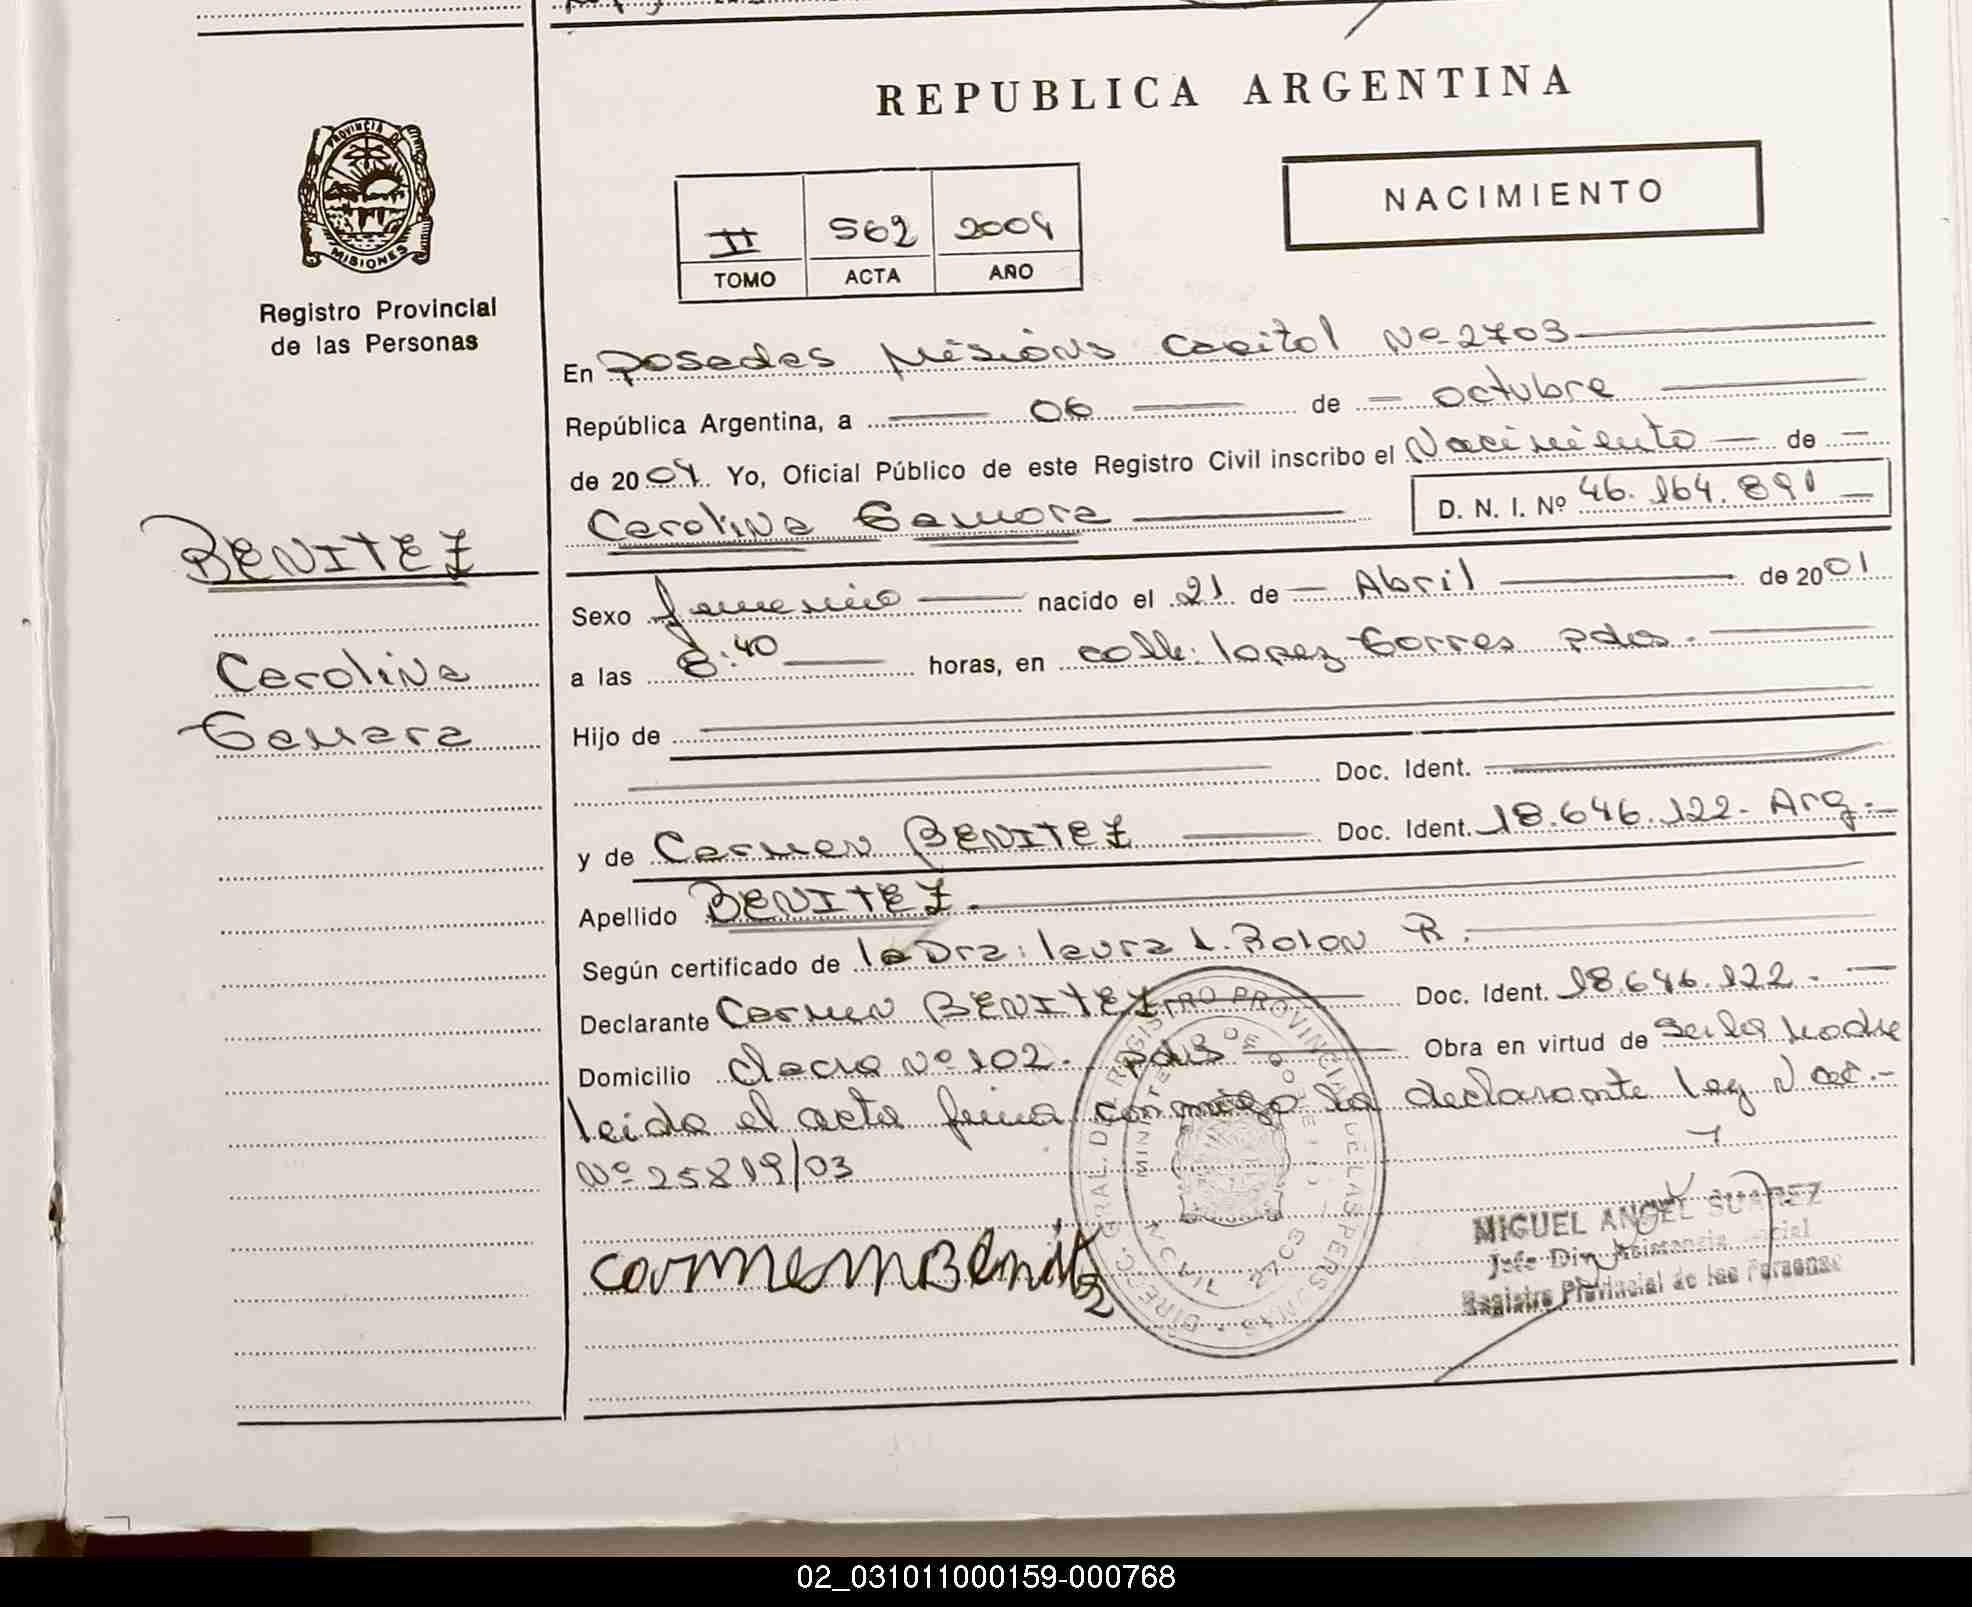 REPUBLICA ARGENTINA
PROVINCIA DE
MISIONES
Registro Provincial
de las Personas
NACIMIENTO
II 562 2004
TOMO ACTA AÑO
En Posadas Misions Capital Nº 2703
República Argentina, a 06 de octubre
de 2004. Yo, Oficial Público de este Registro Civil inscribo el Nacimiento de
Carolina Tamara D. N. I. Nº 46.164.891
BENITEZ
Carolina
Tamara
Sexo femenino nacido el 21 de Abril de 2001
a las 8:40 horas, en calle: lopez Torres pdas.
Hijo de
Doc. Ident.
y de Carmen BENITEZ Doc. Ident. 18.646.122. Arg.
Apellido BENITEZ.
Según certificado de la Dra: laura L. Rolon R.
Declarante Carmen BENITEZ Doc. Ident. 18.646.122.
Domicilio chacra Nº 102. pdas Obra en virtud de ser la Madre
leida el acta firma conmigo la declarante ley Nac.-
Nº 25819/03
Carmem Benitez
DIRECC. GRAL. DEL REGISTRO PROVINCIAL DE LAS PERSONAS
MINISTERIO DE GOBIERNO
CIVIL 2703
MIGUEL ANGEL SUAREZ
Jefe Dir. Asistencia Social
Registro Provincial de las Personas
02_031011000159-000768